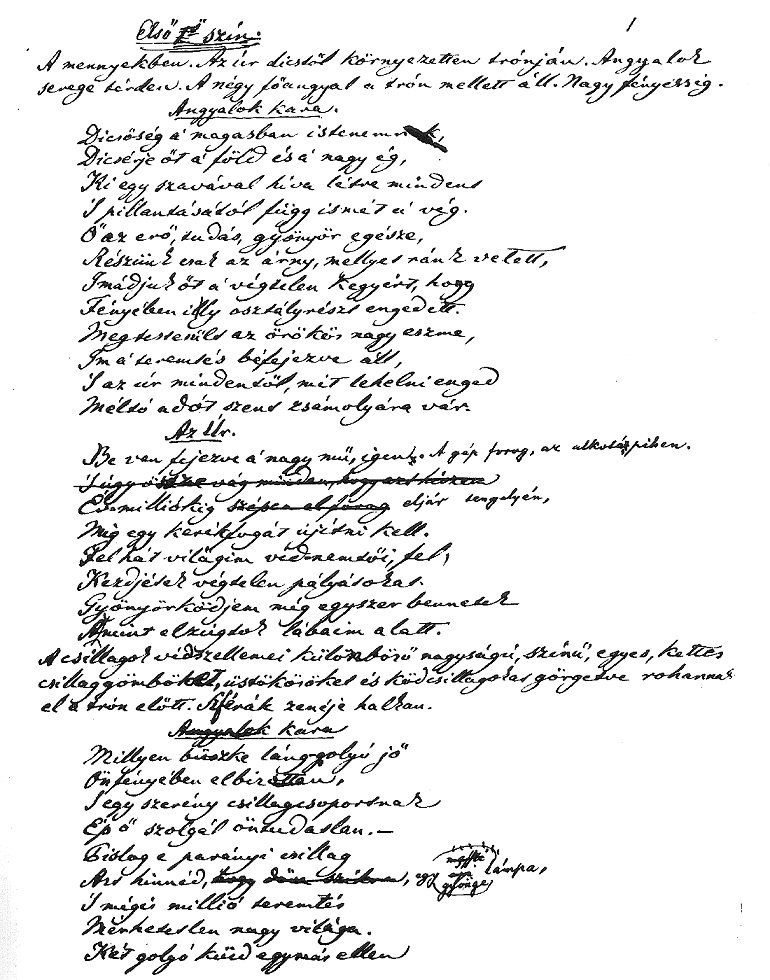 1
Első szín.
A mennyekben. Az úr dicstől környezetten trónján. Angyalok
serege térden. A négy főangyal a trón mellett áll. Nagy fényesség.
Angyalok kara.
Dicsőség a' magasban istenemnek,
Dicsérje őt a' föld és a' nagy ég,
Ki egy szavával híva létre mindent
S pillantásától függ ismét a' vég.
Ő az erő, tudás, gyönyör egésze,
Részünk csak az árny, mellyet ránk vetett,
Imádjuk őt a' végtelen kegyért, hogy
Fényében illy osztályrészt engedett.
Megtestesült az örökös nagy eszme,
Im a' teremtés béfejezve áll,
S az úr mindentől, mit lehelni enged
Méltó adót szent zsámolyára vár.
Az Úr.
Be van fejezve a' nagy mű, igen. A gép forog, az alkotó pihen.
S úgy össze vág minden, hogy azt hiszem
Évmilliókig szépen elforog eljár tengelyén,
Mig egy kerékfogát újítni kell.
Fel hát világim védnemtői, fel,
Kezdjétek végtelen pályátokat.
Gyönyörködjem még egyszer bennetek
Amint elzúgtok lábaim alatt.
A csillagok védszellemei különböző nagyságú, színű, egyes, kettős
csillaggömböket, üstökösöket és ködcsillagokat görgetve rohannak
el a trón előtt. Szférák zenéje halkan.
Angyalok kara
Millyen büszke lánggolyó jő
Önfényében elbizottan,
S egy szerény csillagcsoportnak
Ép ő szolgál öntudatlan. –
Pislog e parányi csillag
Azt hinnéd, egy gyönge lámpa,
S mégis millió teremtés
Mérhetetlen nagy világa.
Két golyó küzd egymás ellen